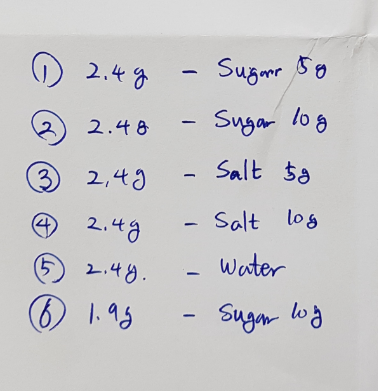 ① 2.4g - Sugar 5g
② 2.4g - Sugar 10g
③ 2,4g - Salt 5g
④ 2.4g - Salt 10g
⑤ 2.4g. - Water
⑥ 1.9g - Sugar 10g